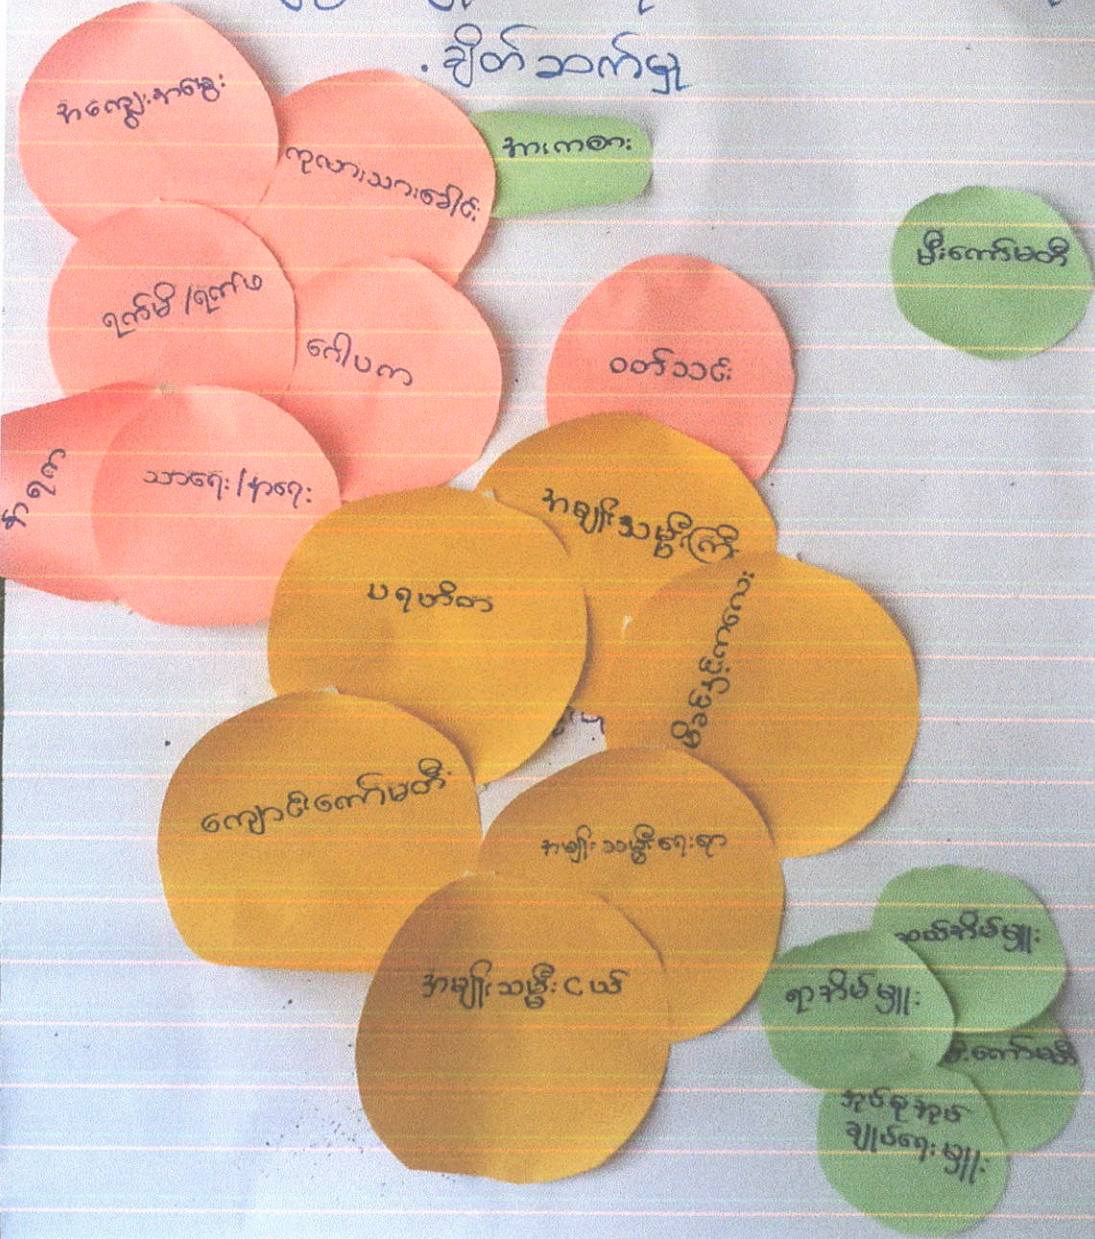 . ချိတ်ဆက်မှု
အကျွေးအမွေး
ကုလားသားခေါင်း
အားကစား
မီးကော်မတီ
ရက်မိ/ရက်ဖ
ဂေါပက
ဝတ်သင်း
အရက
သာရေး/နာရေး
အမျိုးသမ္မီးကြီး
ပရဟိတ
မိခင်နှင့်ကလေး
ကျောင်းကော်မတီ
အမျိုးသမ္မီးရေးရာ
အမျိုးသမ္မီးငယ်
ဆယ်အိမ်မှူး
ရာအိမ်မှူး
မီးကော်မတီ
အုပ်စုအုပ်
ချုပ်ရေးမှူး